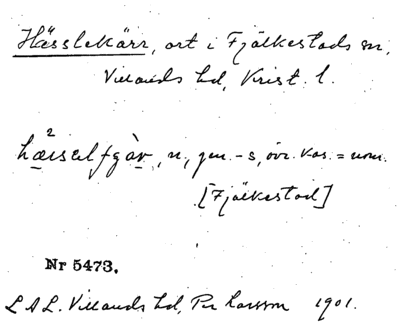 Hässlekärr, ort i Fjälkestads sn,
Villands hd, Krist. l.
n, gen. -s, övr. kas. = nom.
[Fjälkestad]
Nr 5473.
L A L. Villands hd, Per Larsson 1901.